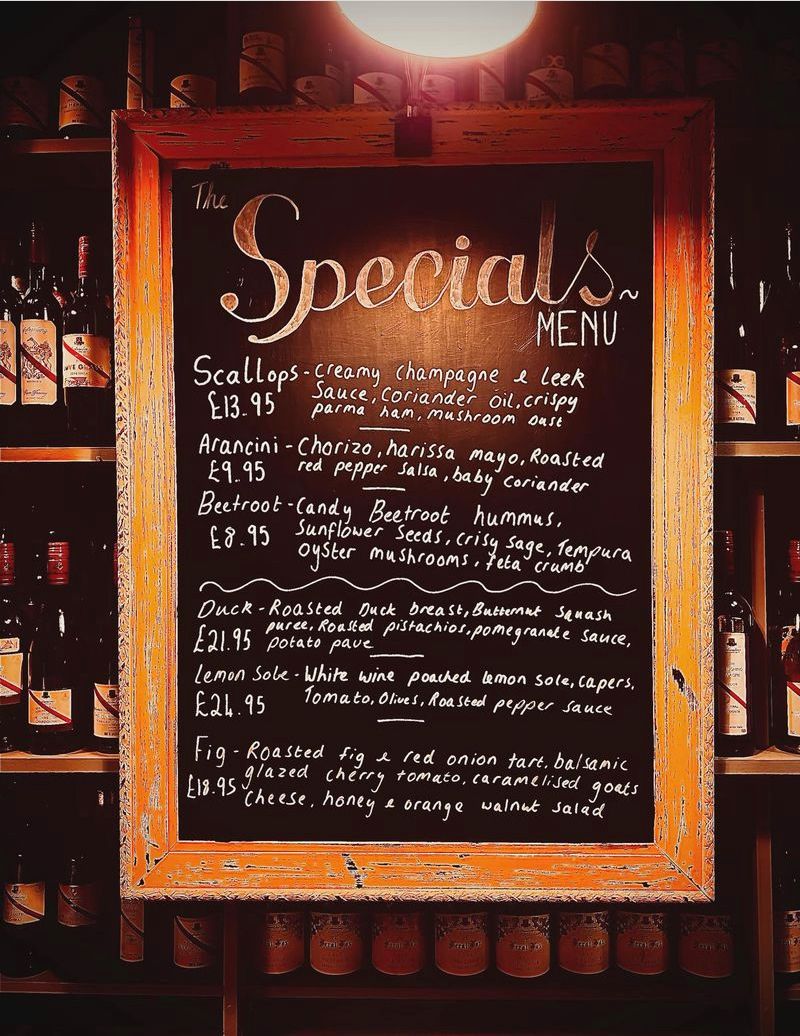 The
Specials ~
MENU
Scallops - creamy champagne & leek
£13.95 Sauce, Coriander oil, crispy
parma ham, mushroom dust
Arancini - Chorizo, harissa mayo, Roasted
£9.95 red pepper salsa, baby coriander
Beetroot - Candy Beetroot hummus,
£8.95 Sunflower Seeds, crisy sage, Tempura
oyster mushrooms, feta crumb
Duck - Roasted Duck breast, Butternut Squash
£21.95 puree, Roasted pistachios, pomegranate sauce,
potato pave
Lemon Sole - White wine poached lemon sole, capers,
£24.95 Tomato, Olives, Roasted pepper sauce
Fig - Roasted fig & red onion tart, balsamic
£18.95 glazed cherry tomato, caramelised goats
cheese, honey & orange walnut salad